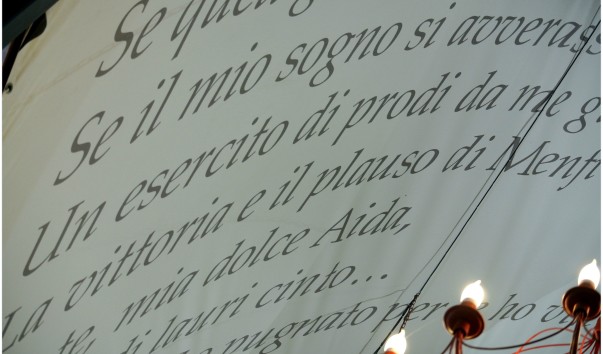 Se quel
Se il mio sogno si avverass
Un esercito di prodi da me g
La vittoria e il plauso di Menfi
te, mia dolce Aida,
di lauri cinto...
pugnato per ho